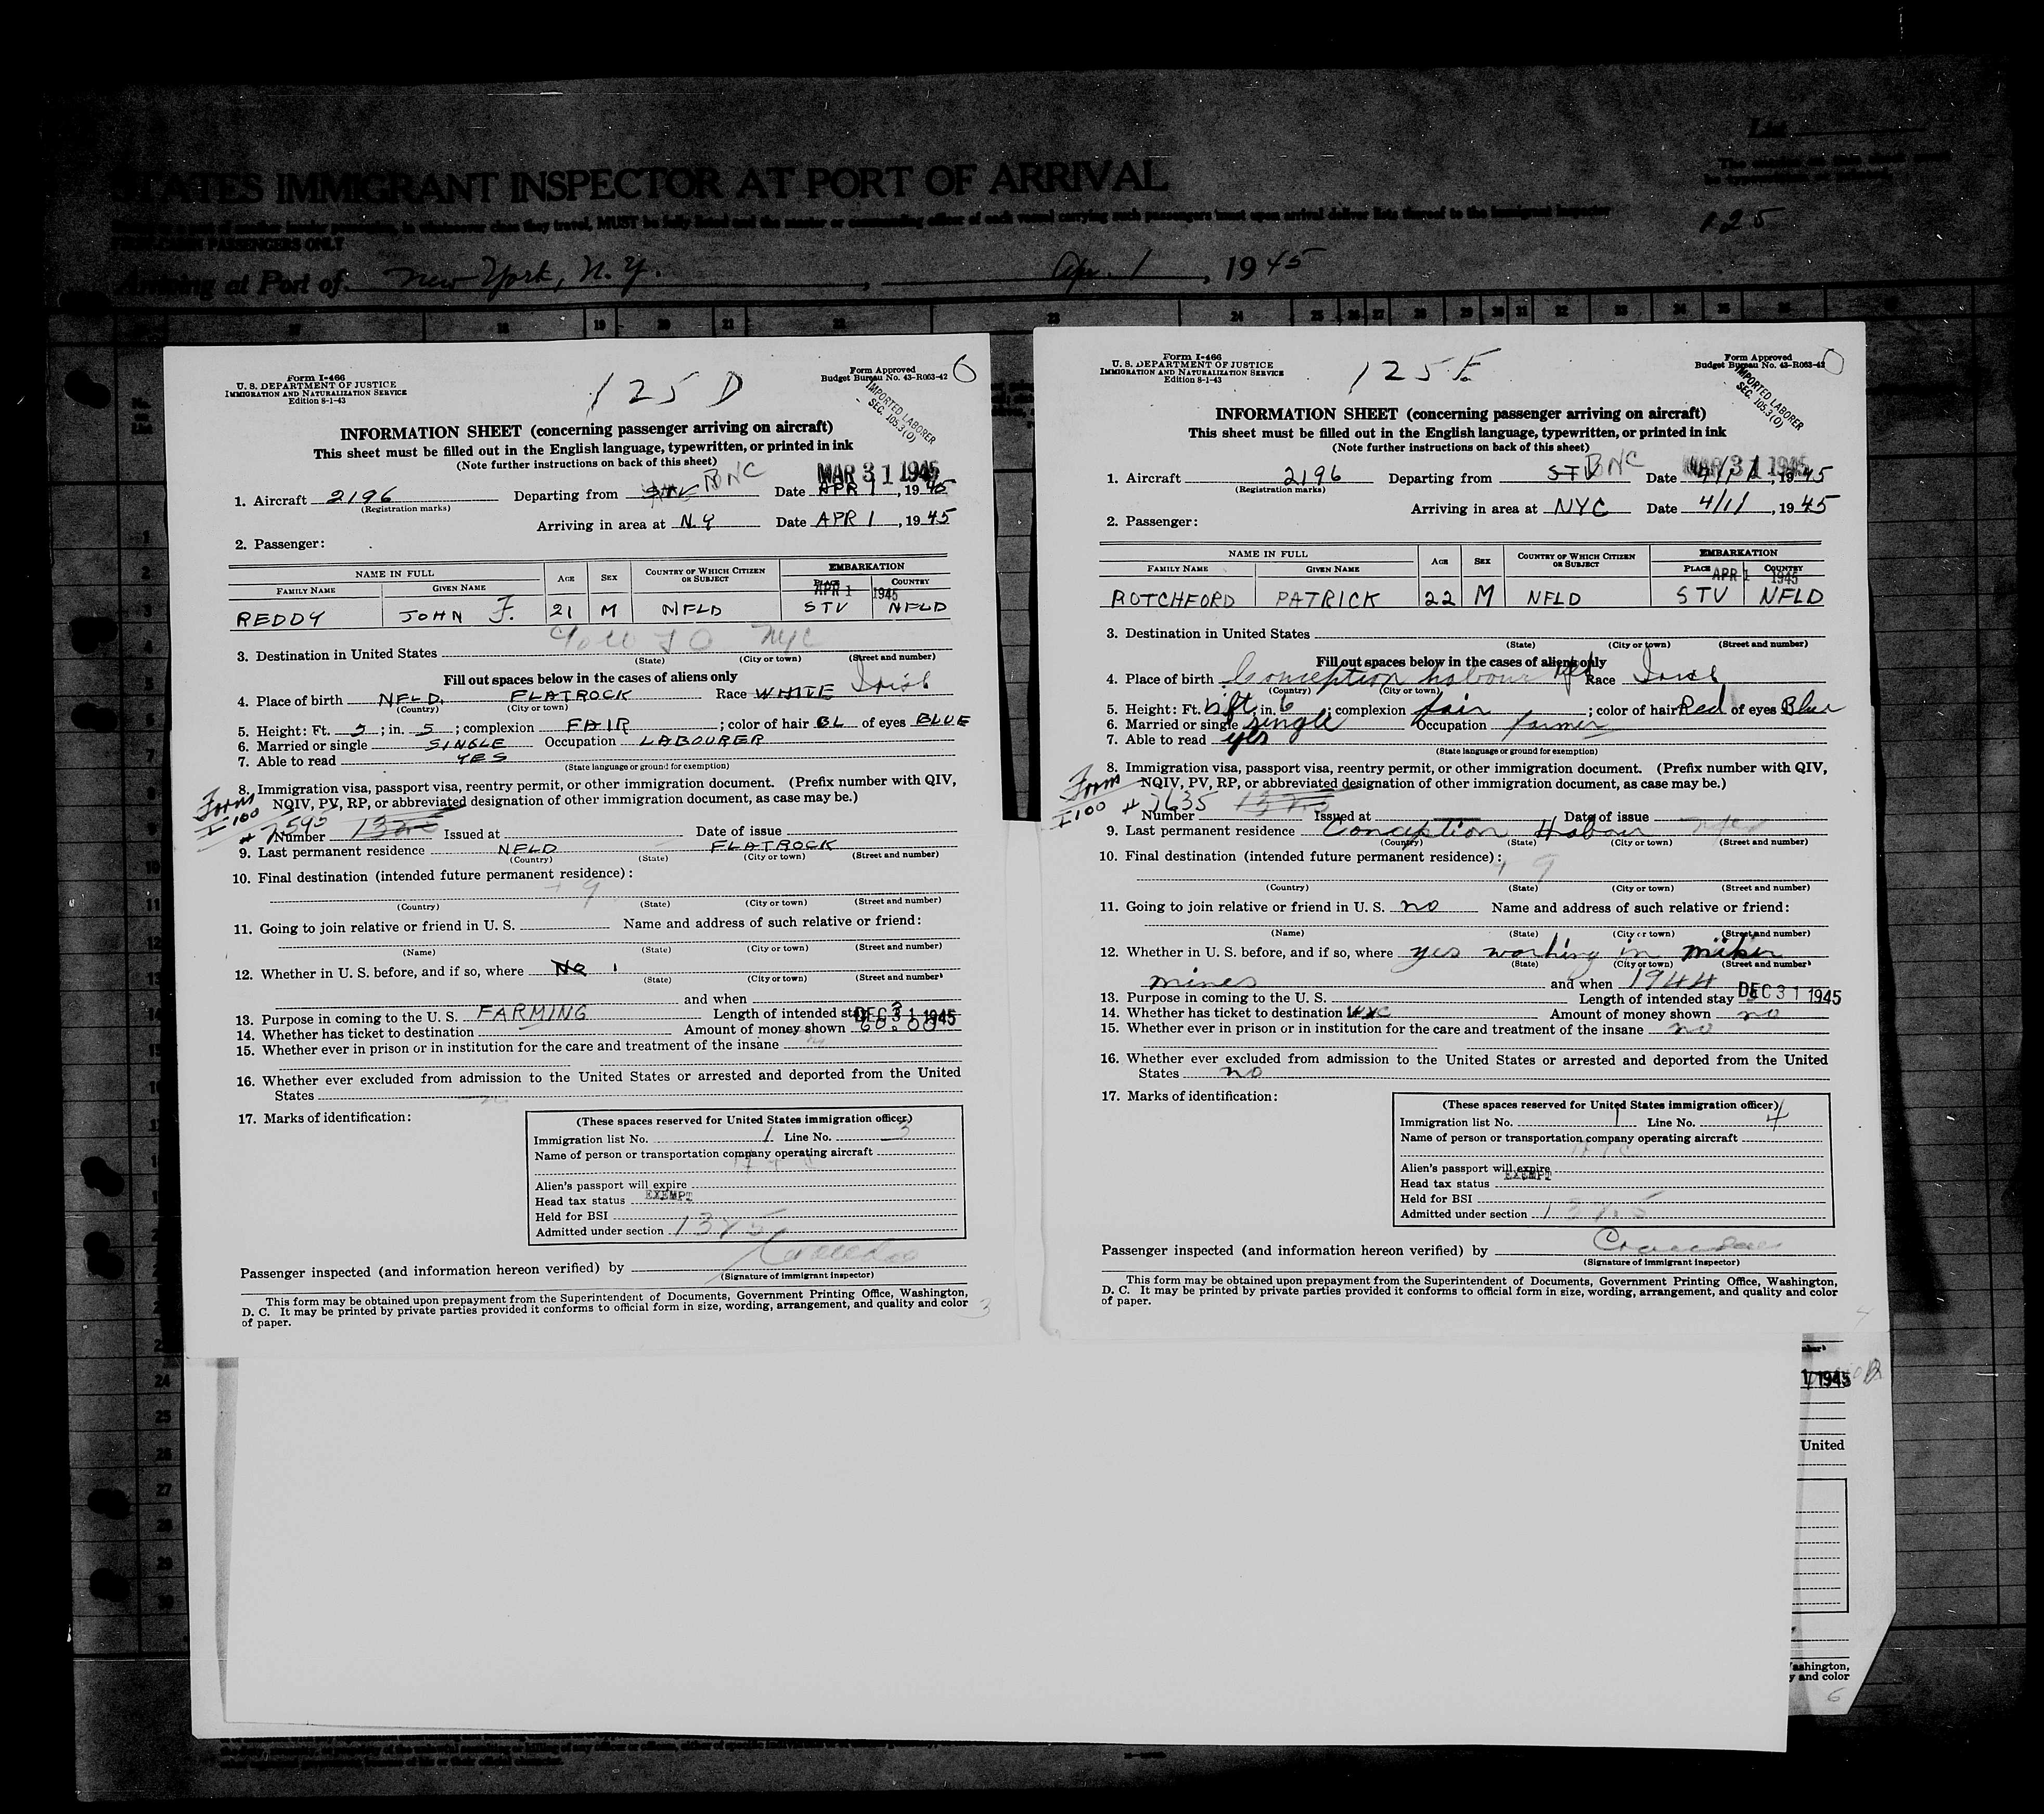 STATES IMMIGRANT INSPECTOR AT PORT OF ARRIVAL
Arriving at Port of New York, N.Y. , Apr. 1 , 1945
125
Form I-466
U. S. DEPARTMENT OF JUSTICE
IMMIGRATION AND NATURALIZATION SERVICE
Edition 8-1-43
125 D
Form Approved
Budget Bureau No. 43-R063-42
IMPORTED LABORER
SEC. 105.3(0)
INFORMATION SHEET (concerning passenger arriving on aircraft)
This sheet must be filled out in the English language, typewritten, or printed in ink
(Note further instructions on back of this sheet)
MAR 31 1945
1. Aircraft 2196 Departing from STV BNC Date APR 1, 1945
(Registration marks)
Arriving in area at N.Y Date APR 1, 1945
2. Passenger:
NAME IN FULL AGE SEX COUNTRY OF WHICH CITIZEN OR SUBJECT EMBARKATION
FAMILY NAME GIVEN NAME PLACE COUNTRY
APR 1 1945
REDDY JOHN F. 21 M NFLD STV NFLD
3. Destination in United States NYC
(State) (City or town) (Street and number)
Fill out spaces below in the cases of aliens only
4. Place of birth NFLD. FLATROCK Race WHITE Irish
(Country) (City or town)
5. Height: Ft. 5 ; in. 5 ; complexion FAIR ; color of hair BL of eyes BLUE
6. Married or single SINGLE Occupation LABOURER
7. Able to read YES
(State language or ground for exemption)
8. Immigration visa, passport visa, reentry permit, or other immigration document. (Prefix number with QIV,
NQIV, PV, RP, or abbreviated designation of other immigration document, as case may be.)
Form I-100
Number Issued at Date of issue
9. Last permanent residence NFLD FLATROCK
(Country) (State) (City or town) (Street and number)
10. Final destination (intended future permanent residence):
(Country) (State) (City or town) (Street and number)
11. Going to join relative or friend in U. S. Name and address of such relative or friend:
(Name) (State) (City or town) (Street and number)
12. Whether in U. S. before, and if so, where NO
(State) (City or town) (Street and number)
and when
13. Purpose in coming to the U. S. FARMING Length of intended stay DEC 31 1945
14. Whether has ticket to destination Amount of money shown 60.00
15. Whether ever in prison or in institution for the care and treatment of the insane no
16. Whether ever excluded from admission to the United States or arrested and deported from the United
States no
17. Marks of identification:
(These spaces reserved for United States immigration officer)
Immigration list No. 1 Line No. 3
Name of person or transportation company operating aircraft
Alien's passport will expire
Head tax status EXEMPT
Held for BSI
Admitted under section
Passenger inspected (and information hereon verified) by
(Signature of immigrant inspector)
This form may be obtained upon prepayment from the Superintendent of Documents, Government Printing Office, Washington,
D. C. It may be printed by private parties provided it conforms to official form in size, wording, arrangement, and quality and color
of paper.
3
Form I-466
U. S. DEPARTMENT OF JUSTICE
IMMIGRATION AND NATURALIZATION SERVICE
Edition 8-1-43
125 E
Form Approved
Budget Bureau No. 43-R063-42
IMPORTED LABORER
SEC. 105.3(0)
INFORMATION SHEET (concerning passenger arriving on aircraft)
This sheet must be filled out in the English language, typewritten, or printed in ink
(Note further instructions on back of this sheet)
MAR 31 1945
1. Aircraft 2196 Departing from STV BNC Date 4/1, 1945
(Registration marks)
Arriving in area at NYC Date 4/1/, 1945
2. Passenger:
NAME IN FULL AGE SEX COUNTRY OF WHICH CITIZEN OR SUBJECT EMBARKATION
FAMILY NAME GIVEN NAME PLACE COUNTRY
APR 1 1945
ROTCHFORD PATRICK 22 M NFLD STV NFLD
3. Destination in United States
(State) (City or town) (Street and number)
Fill out spaces below in the cases of aliens only
4. Place of birth Conception habour Nfld Race Irish
(Country) (City or town)
5. Height: Ft. 5ft in. 6 ; complexion fair ; color of hair Red of eyes Blue
6. Married or single single Occupation farmer
7. Able to read yes
(State language or ground for exemption)
8. Immigration visa, passport visa, reentry permit, or other immigration document. (Prefix number with QIV,
NQIV, PV, RP, or abbreviated designation of other immigration document, as case may be.)
Form I-100 # 7635
Number Issued at Date of issue
9. Last permanent residence Conception Habour Nfld
(Country) (State) (City or town) (Street and number)
10. Final destination (intended future permanent residence):
(Country) (State) (City or town) (Street and number)
11. Going to join relative or friend in U. S. no Name and address of such relative or friend:
(Name) (State) (City or town) (Street and number)
12. Whether in U. S. before, and if so, where yes working in
(State) (City or town) (Street and number)
mines and when 1944
13. Purpose in coming to the U. S. Length of intended stay DEC 31 1945
14. Whether has ticket to destination NYC Amount of money shown no
15. Whether ever in prison or in institution for the care and treatment of the insane no
16. Whether ever excluded from admission to the United States or arrested and deported from the United
States no
17. Marks of identification:
(These spaces reserved for United States immigration officer)
Immigration list No. 1 Line No. 4
Name of person or transportation company operating aircraft
Alien's passport will expire
Head tax status EXEMPT
Held for BSI
Admitted under section
Passenger inspected (and information hereon verified) by
(Signature of immigrant inspector)
This form may be obtained upon prepayment from the Superintendent of Documents, Government Printing Office, Washington,
D. C. It may be printed by private parties provided it conforms to official form in size, wording, arrangement, and quality and color
of paper.
4
1945
United
ashington,
y and color
6